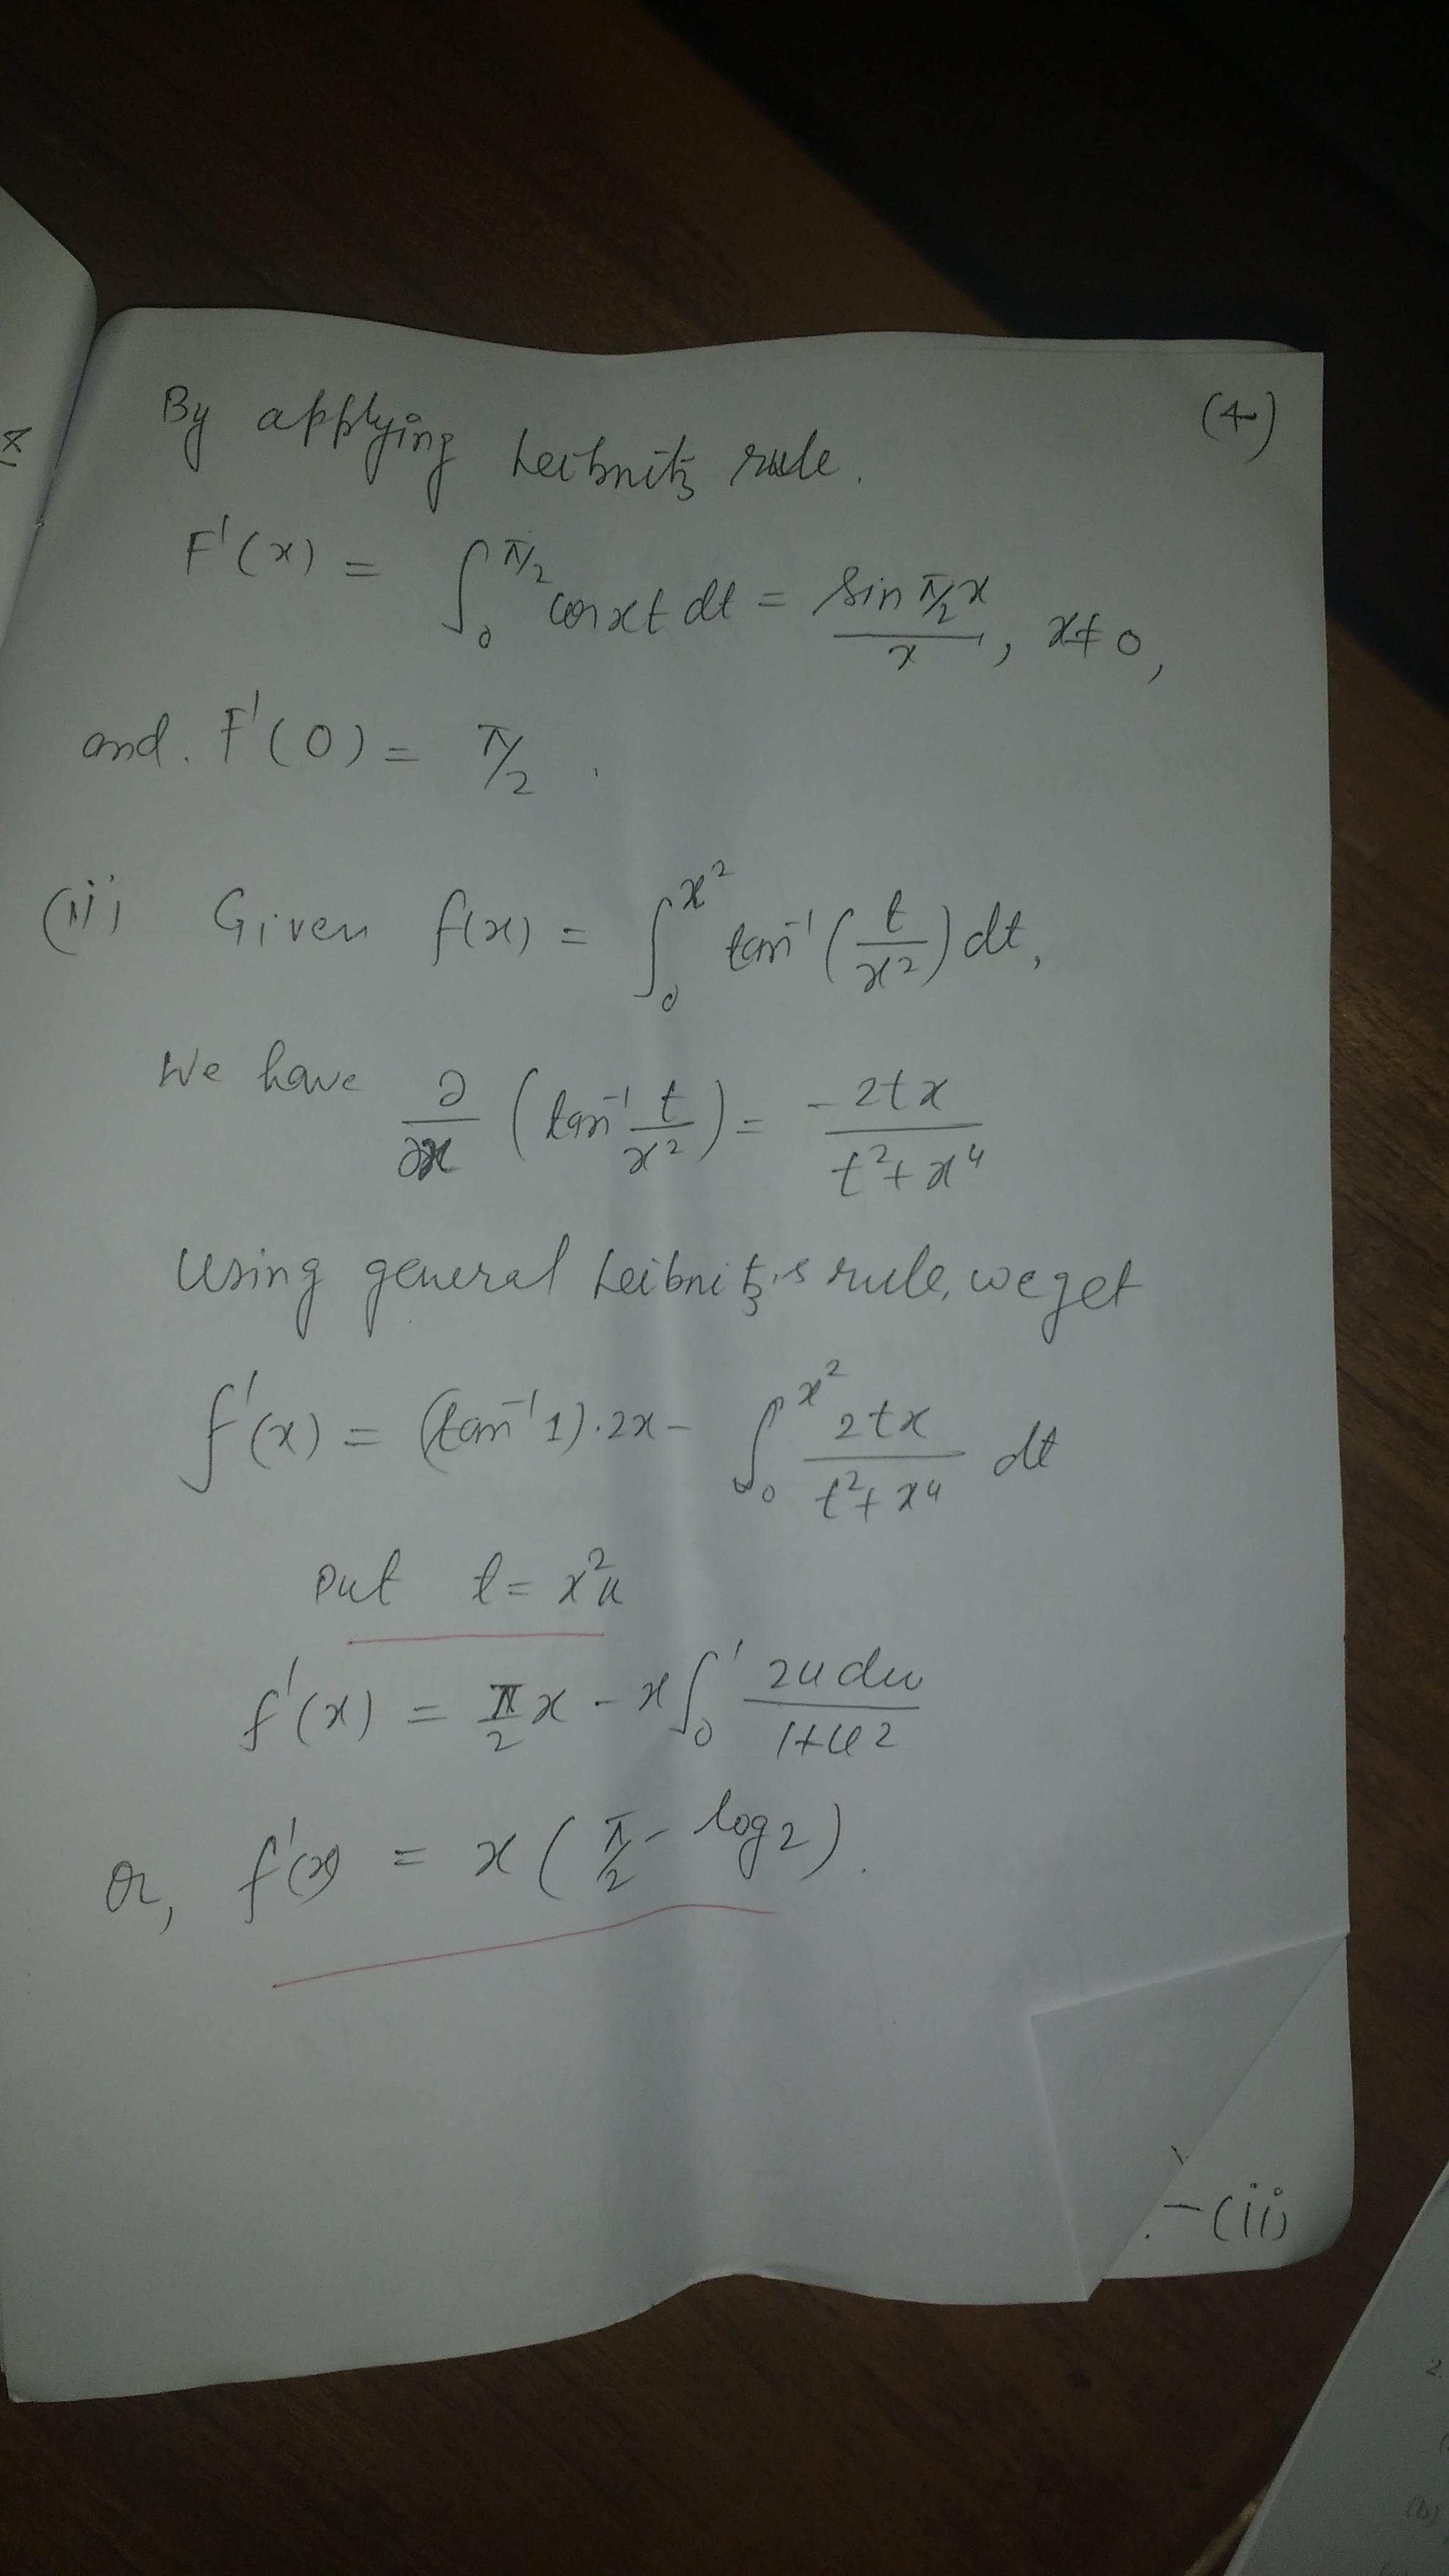 (4)
By applying Leibnitz rule.
F'(x) = ∫₀^{π/2} cos xt dt = sin π/2 x / x, x ≠ 0,
and. F'(0) = π/2.
(ii) Given f(x) = ∫₀^{x²} tan⁻¹ (t/x²) dt,
We have ∂/∂x (tan⁻¹ t/x²) = - 2tx / t²+x⁴
Using general Leibnitz's rule, we get
f'(x) = (tan⁻¹ 1)·2x - ∫₀^{x²} 2tx / t²+x⁴ dt
Put t = x²u
f'(x) = π/2 x - x ∫₀¹ 2u du / 1+u²
or, f'(x) = x (π/2 - log 2).
-(ii)